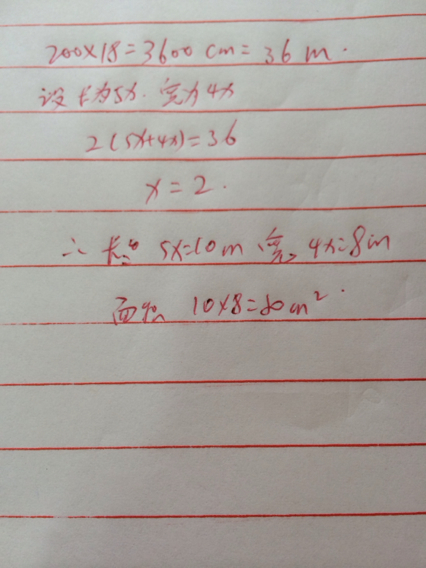 200×18=3600 cm=36 m.
设长为5x.宽为4x
2(5x+4x)=36
x=2.
∴长: 5x=10m 宽: 4x=8m
面积 10×8=80m².